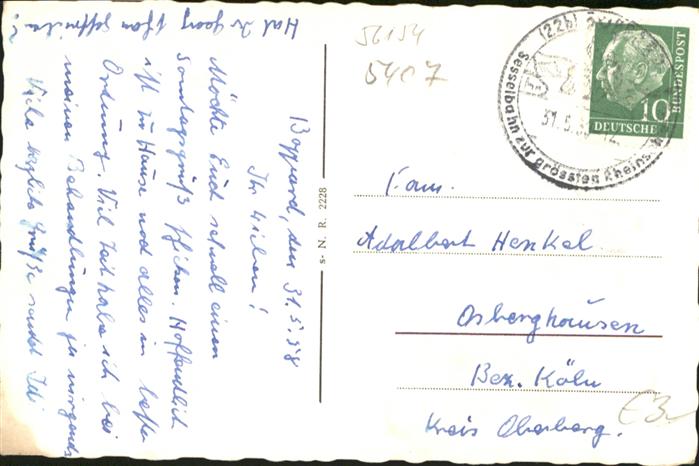 Boppard, den 31.5.58
Ihr Lieben!
Möchte Euch schnell einen
Sonntagsgruß schicken. Hoffentlich
ist zu Hause noch alles in bester
Ordnung. Viel Zeit habe ich bei
meinen Behandlungen ja nirgends
Viele herzliche Grüße sendet
Hat Dr Georg schon geschrieben?
s- N. R. 2228
56154
5407
(22b)
Sesselbahn zur grössten Rheinschleife
31.5.58
10
DEUTSCHE
BUNDESPOST
Fam.
Adalbert Henkel
Osberghausen
Bez. Köln
Kreis Oberberg.
€3-